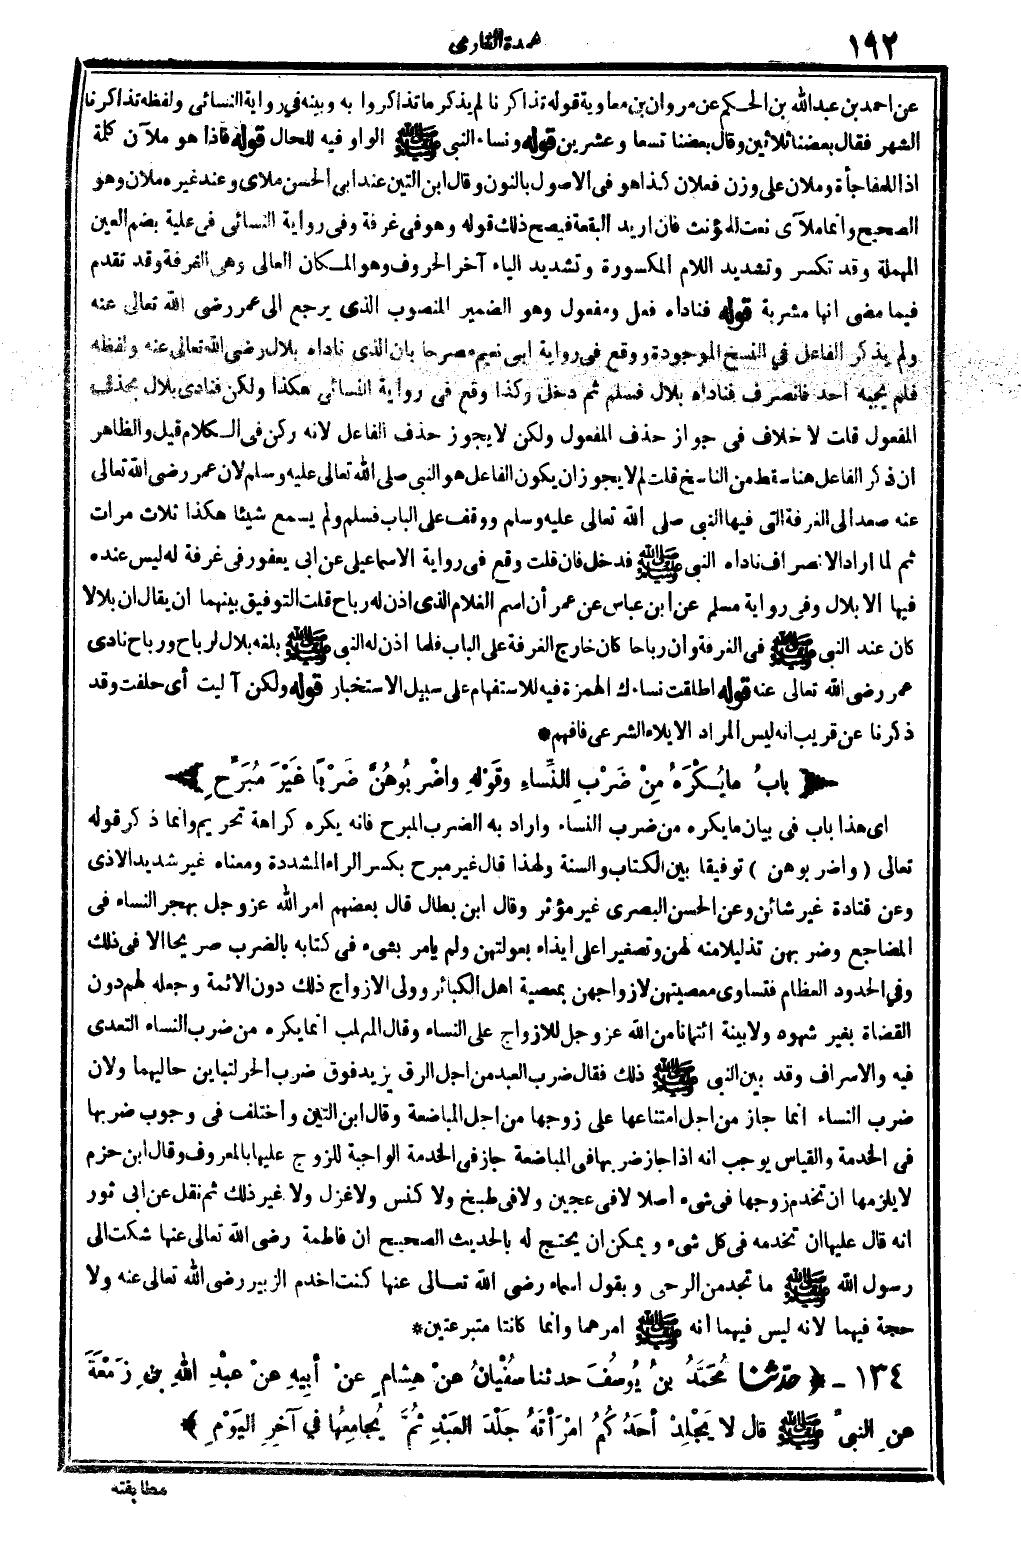 ١٩٢
عمدة القارى
عن احمد بن عبدالله بن الحكم عن مروان بن معاوية قوله تذاكرنا لم يذكر ما تذاكروا به وبينه في رواية النسائى ولفظه تذاكرنا
الشهر فقال بعضنا ثلاثين وقال بعضنا تسعا وعشرين قوله ونساء النبى ﷺ الواو فيه للحال قوله فاذا هو ملآن كلمة
اذا للمفاجأة وملان على وزن فعلان كذا هو فى الاصول بالنون وقال ابن التين عند ابى الحسن ملاى وعند غيره ملان وهو
الصحيح وانما ملآى نعت للمؤنث فان اريد البقعة فيصح ذلك قوله وهو فى غرفة وفى رواية النسائى فى علية بضم العين
المهملة وقد تكسر وتشديد اللام المكسورة وتشديد الياء آخر الحروف وهو المكان العالى وهى الغرفة وقد تقدم
فيما مضى انها مشربة قوله فناداه فعل ومفعول وهو الضمير المنصوب الذى يرجع الى عمر رضى الله تعالى عنه
ولم يذكر الفاعل في النسخ الموجودة ووقع فى رواية ابى نعيم مصرحا بان الذى ناداه بلال رضى الله تعالى عنه ولفظه
فلم يجبه احد فانصرف فناداه بلال فسلم ثم دخل وكذا وقع فى رواية النسائى هكذا ولكن فنادى بلال بحذف
المفعول قلت لا خلاف فى جواز حذف المفعول ولكن لا يجوز حذف الفاعل لانه ركن فى الكلام قيل والظاهر
ان ذكر الفاعل هنا سقط من الناسخ قلت لم لا يجوز ان يكون الفاعل هو النبى صلى الله تعالى عليه وسلم لان عمر رضى الله تعالى
عنه صعد الى الغرفة التى فيها النبى صلى الله تعالى عليه وسلم ووقف على الباب فسلم ولم يسمع شيئا هكذا ثلاث مرات
ثم لما اراد الانصراف ناداه النبى ﷺ فدخل فان قلت وقع فى رواية الاسماعيلى عن ابى يعفور فى غرفة له ليس عنده
فيها الا بلال وفى رواية مسلم عن ابن عباس عن عمر أن اسم الغلام الذى اذن له رباح قلت التوفيق بينهما ان يقال ان بلالا
كان عند النبى ﷺ فى الغرفة وأن رباحا كان خارج الغرفة على الباب فلما اذن له النبى ﷺ بلغه بلال لرباح ورباح نادى
عمر رضى الله تعالى عنه قوله اطلقت نساءك الهمزة فيه للاستفهام على سبيل الاستخبار قوله ولكن آليت أى حلفت وقد
ذكرنا عن قريب انه ليس المراد الايلاء الشرعى فافهم*
﴿ بابُ ما يُكْرَهُ مِنْ ضَرْبِ النِّساءِ وقَوْلِهِ واضْرِبُوهُنَّ ضَرْبًا غَيْرَ مُبَرِّحٍ ﴾
اى هذا باب فى بيان ما يكره من ضرب النساء واراد به الضرب المبرح فانه يكره كراهة تحريم وانما ذكر قوله
تعالى (واضربوهن) توفيقا بين الكتاب والسنة ولهذا قال غير مبرح بكسر الراء المشددة ومعناه غير شديد الاذى
وعن قتادة غير شائن وعن الحسن البصرى غير مؤثر وقال ابن بطال قال بعضهم امر الله عز وجل بهجر النساء فى
المضاجع وضربهن تذليلا منه لهن وتصغيرا على ايذاء بعولتهن ولم يامر بشىء فى كتابه بالضرب صريحا الا فى ذلك
وفي الحدود العظام فتساوى معصيتهن لازواجهن بمعصية اهل الكبائر وولى الازواج ذلك دون الائمة وجعله لهم دون
القضاة بغير شهود ولا بينة ائتمانا من الله عز وجل للازواج على النساء وقال المهلب انما يكره من ضرب النساء التعدى
فيه والاسراف وقد بين النبى ﷺ ذلك فقال ضرب العبد من اجل الرق يزيد فوق ضرب الحر لتباين حاليهما ولان
ضرب النساء انما جاز من اجل امتناعها على زوجها من اجل المباضعة وقال ابن التين واختلف فى وجوب ضربها
فى الخدمة والقياس يوجب انه اذا جاز ضربها فى المباضعة جاز فى الخدمة الواجبة للزوج عليها بالمعروف وقال ابن حزم
لا يلزمها ان تخدم زوجها فى شىء أصلا لا فى عجين ولا فى طبخ ولا كنس ولا غزل ولا غير ذلك ثم نقل عن ابى ثور
انه قال عليها ان تخدمه فى كل شىء ويمكن ان يحتج له بالحديث الصحيح ان فاطمة رضى الله تعالى عنها شكت الى
رسول الله ﷺ ما تجد من الرحى وبقول اسماء رضى الله تعالى عنها كنت اخدم الزبير رضى الله تعالى عنه ولا
حجة فيهما لانه ليس فيهما أنه ﷺ امرهما وانما كانتا متبرعتين*
١٣٤ - ﴿ حدثنا مُحَمَّدُ بنُ يُوسُفَ حدثنا سُفْيانُ عنْ هِشامٍ عنْ أبِيهِ عنْ عبْدِ اللهِ بنِ زَمْعَةَ
عنِ النبىِّ ﷺ قال لا يَجْلِدْ أحَدُكُمُ امْرَأتَهُ جَلْدَ العَبْدِ ثُمَّ يُجامِعُها في آخِرِ اليَوْمِ ﴾
مطابقته